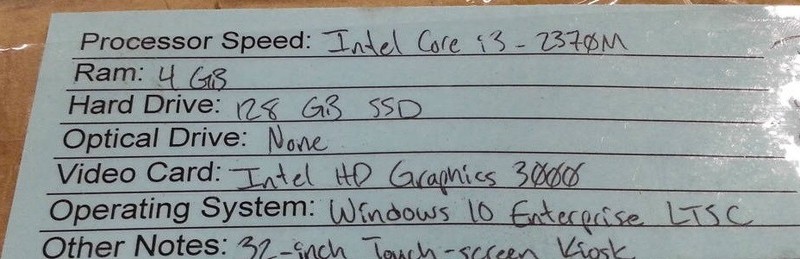 Processor Speed: Intel Core i3-2370M
Ram: 4 GB
Hard Drive: 128 GB SSD
Optical Drive: None
Video Card: Intel HD Graphics 3000
Operating System: Windows 10 Enterprise LTSC
Other Notes: 32-inch Touch-screen Kiosk